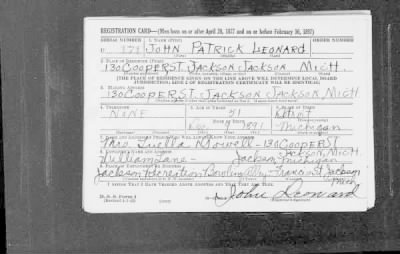 REGISTRATION CARD—(Men born on or after April 28, 1877 and on or before February 16, 1897)
SERIAL NUMBER 1. NAME (Print) ORDER NUMBER
U JOHN PATRICK LEONARD
2. PLACE OF RESIDENCE (Print)
130 COOPER ST. JACKSON JACKSON MICH.
[THE PLACE OF RESIDENCE GIVEN ON THE LINE ABOVE WILL DETERMINE LOCAL BOARD
JURISDICTION; LINE 2 OF REGISTRATION CERTIFICATE WILL BE IDENTICAL]
3. MAILING ADDRESS
130 COOPER ST. JACKSON JACKSON, MICH
4. TELEPHONE 5. AGE IN YEARS 6. PLACE OF BIRTH
NONE 51 DETROIT
DATE OF BIRTH
1891 Michigan
7. NAME AND ADDRESS OF PERSON WHO WILL ALWAYS KNOW YOUR ADDRESS
Mrs. Luella Mowell - 130 COOPER ST
JACKSON, MICH.
8. EMPLOYER'S NAME AND ADDRESS
William Lane - Jackson, Michigan
9. PLACE OF EMPLOYMENT OR BUSINESS
Jackson Recreation Bowling Alley - Francis St. Jackson
Mich
I AFFIRM THAT I HAVE VERIFIED ABOVE ANSWERS AND THAT THEY ARE TRUE.
D. S. S. Form 1
John Leonard